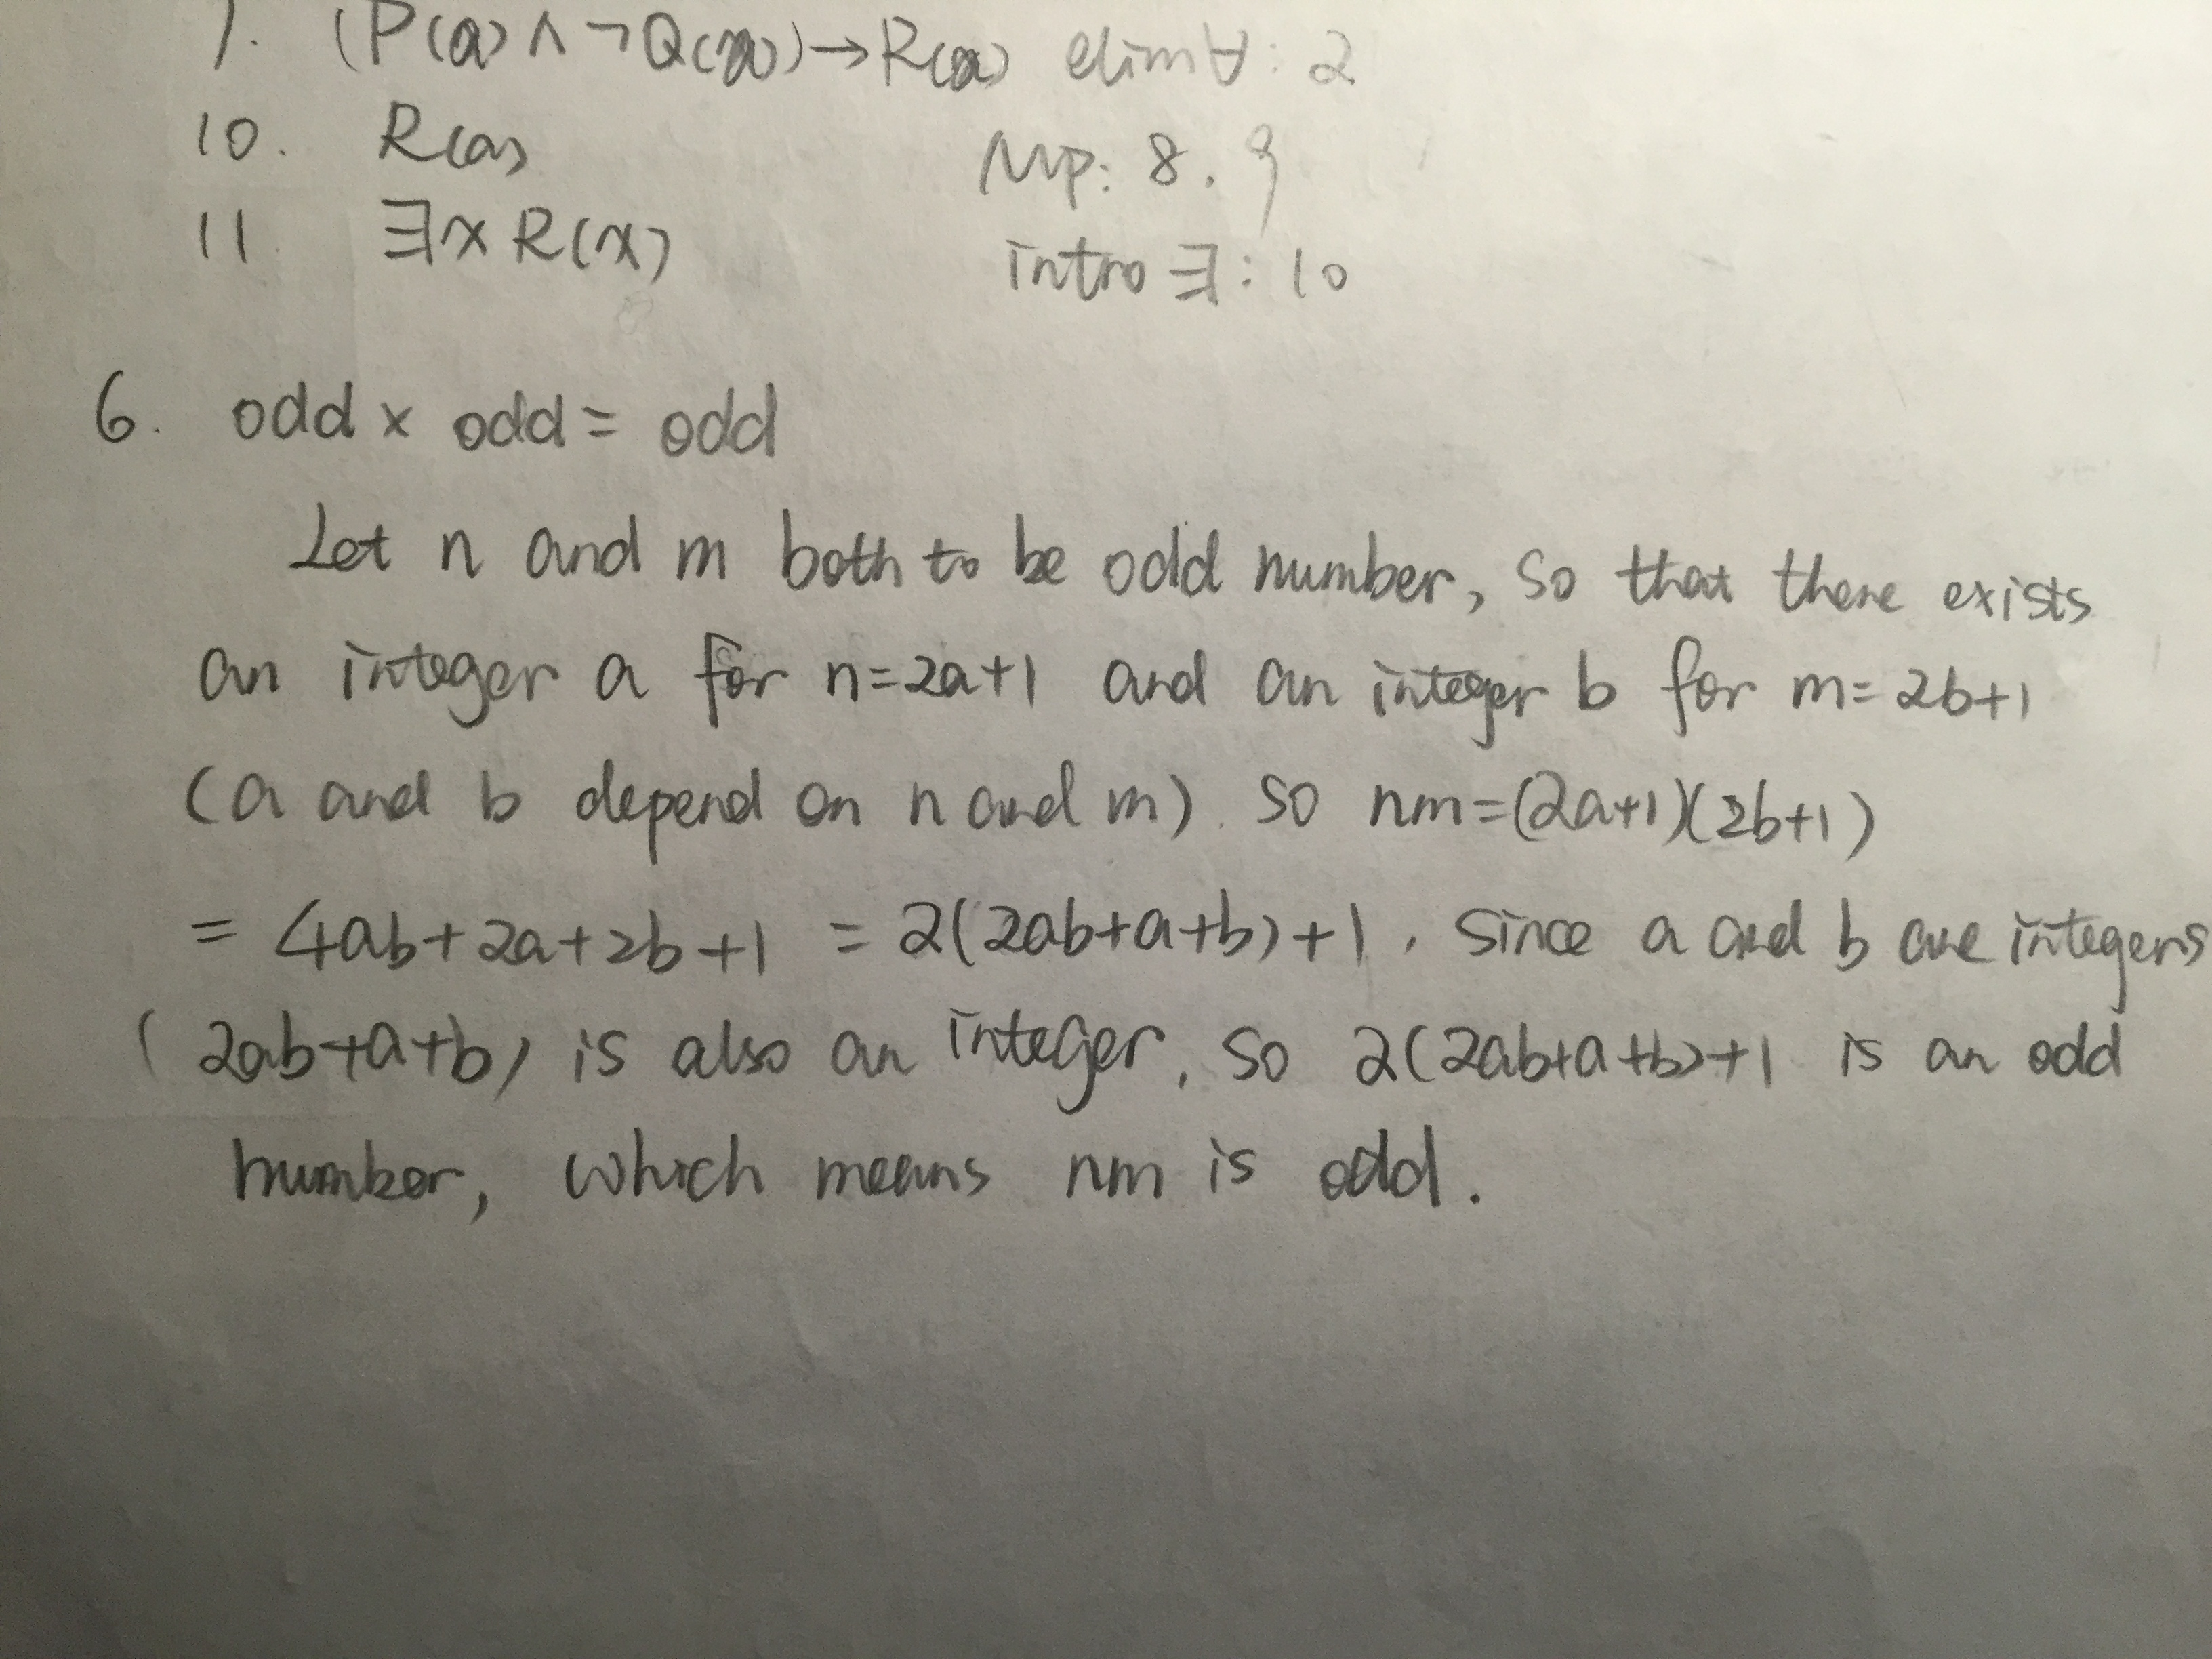 9. (P(a) ∧ ¬Q(a)) → R(a) elim ∀: 2
10. R(a) MP: 8, 9
11 ∃x R(x) intro ∃: 10
6. odd × odd = odd
Let n and m both to be odd number, so that there exists
an integer a for n=2a+1 and an integer b for m=2b+1
(a and b depend on n and m). So nm=(2a+1)(2b+1)
= 4ab+2a+2b+1 = 2(2ab+a+b)+1. Since a and b are integers
(2ab+a+b) is also an integer, so 2(2ab+a+b)+1 is an odd
number, which means nm is odd.